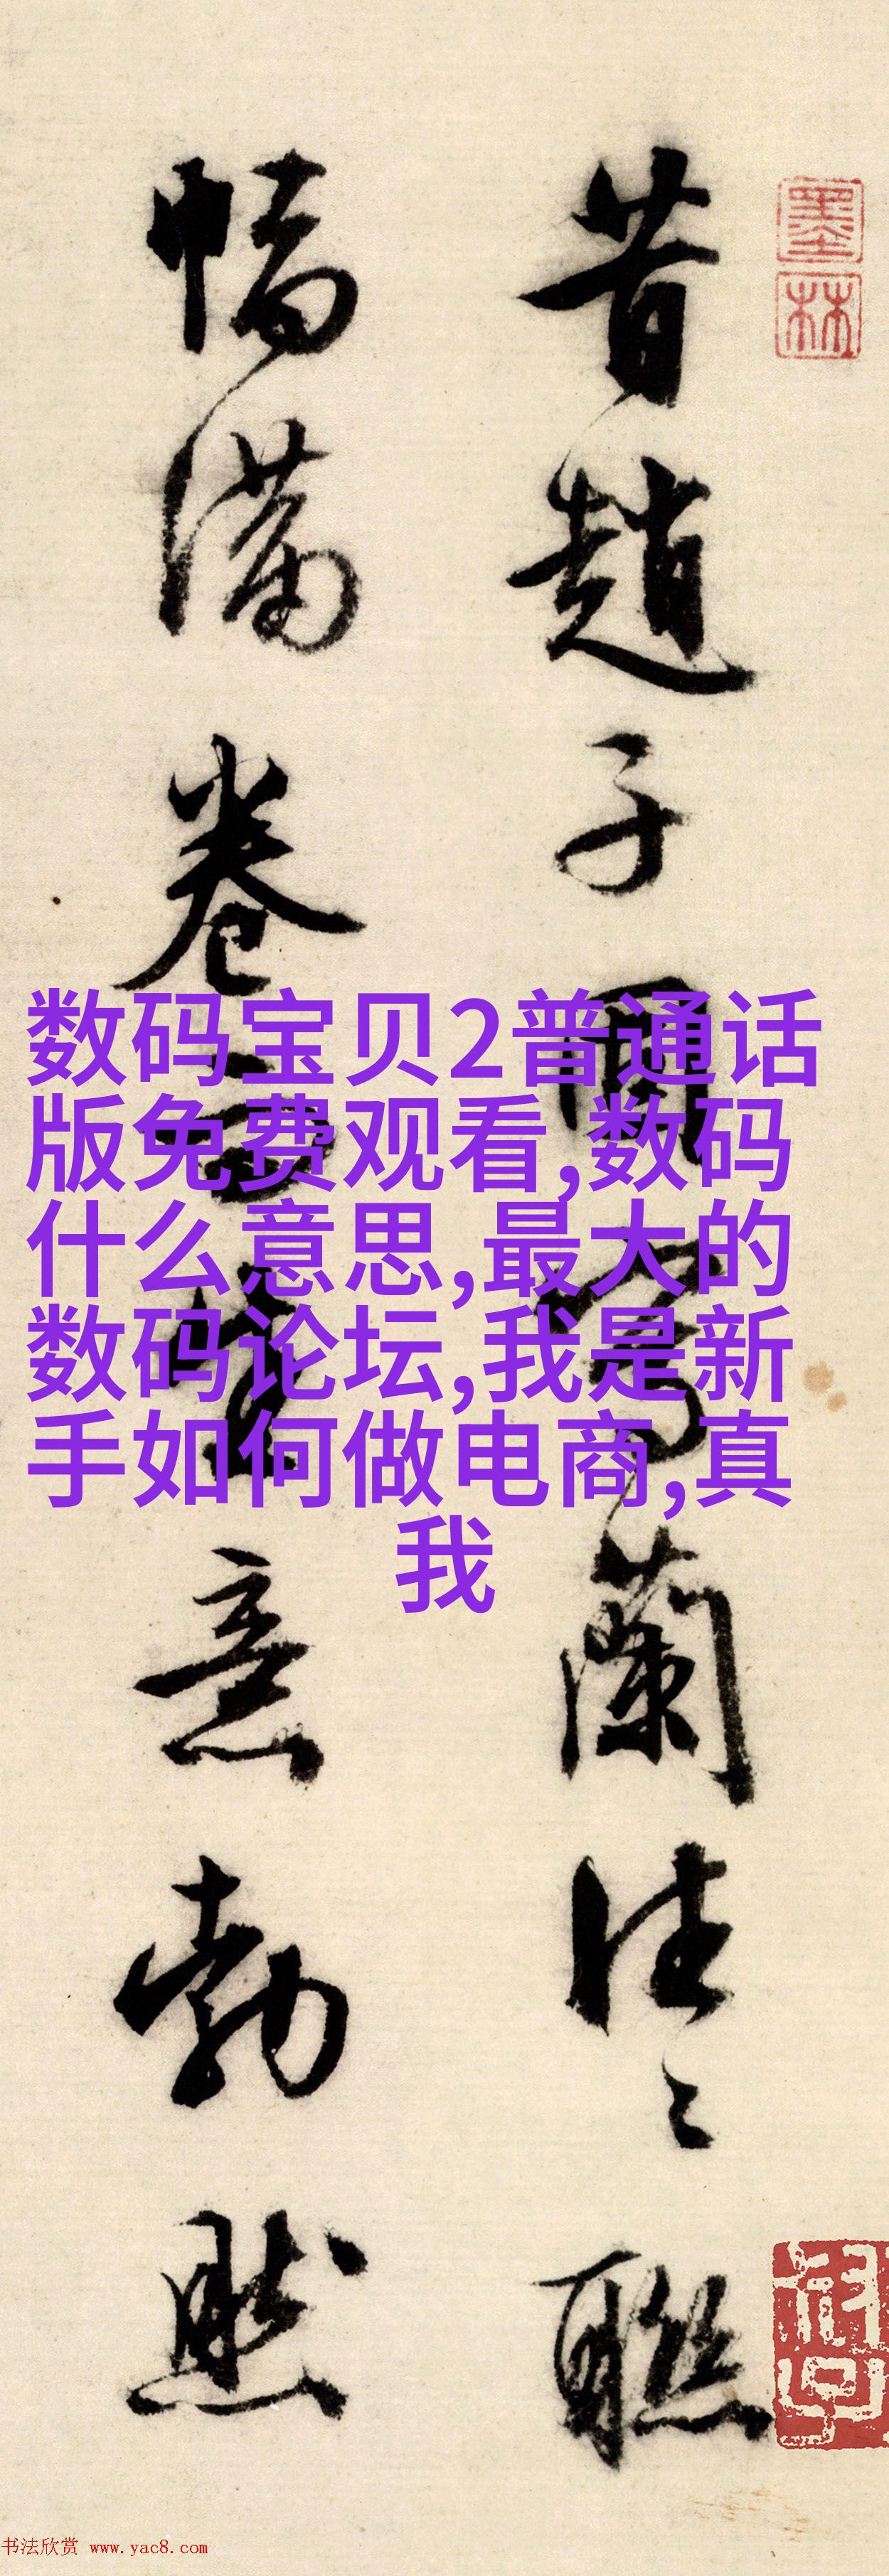 昔趙子固寫蘭往〻聯
幅滿卷而生意勃然
墨林
数码宝贝2普通话
版免费观看,数码
什么意思,最大的
数码论坛,我是新
手如何做电商,真
我
书法欣赏 www.yac8.com